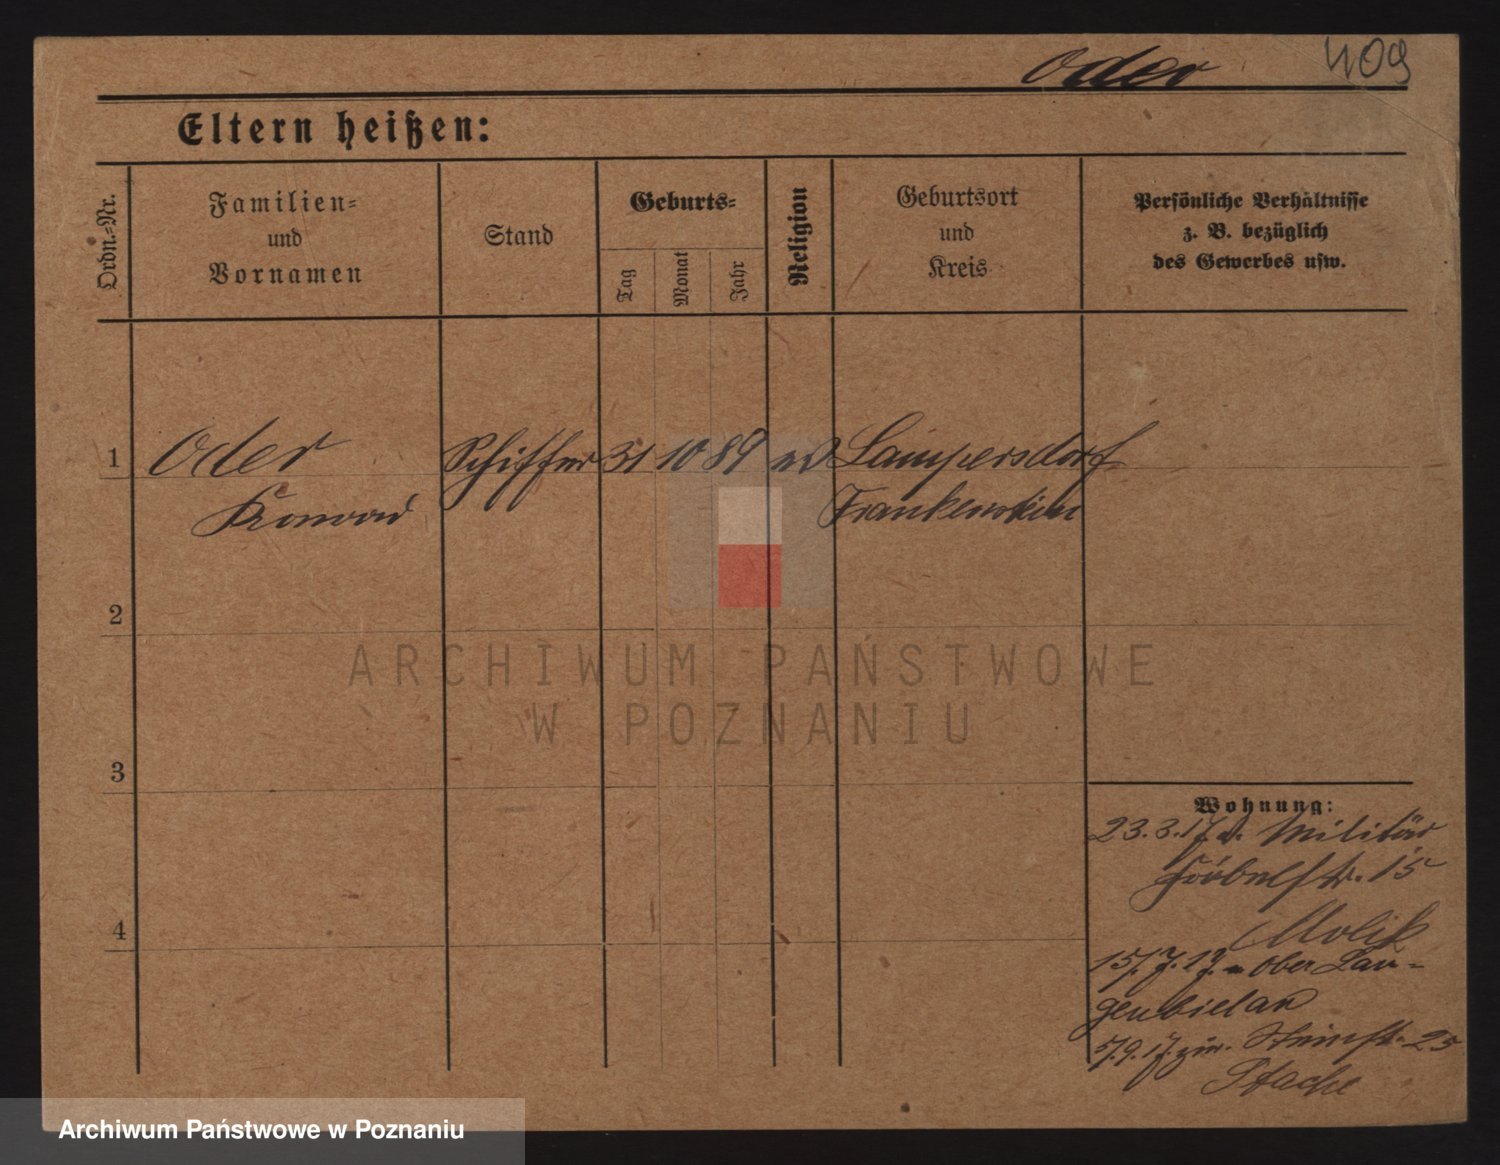 Oder 409
Eltern heißen:
Ordn.-Nr.
Familien-
und
Vornamen
Stand
Geburts-
Tag
Monat
Jahr
Religion
Geburtsort
und
Kreis
Persönliche Verhältnisse
z. B. bezüglich
des Gewerbes usw.
1 Oder Schiffer 31 10 89 Lampersdorf
Konrad Frankenstein
2
3
4
Wohnung:
23.3.17 v. Militär
15
Molik
15/7.17. n Ober Lan-
genbielau
5/9.17 zur. 25
Stache
ARCHIWUM PAŃSTWOWE
W POZNANIU
Archiwum Państwowe w Poznaniu